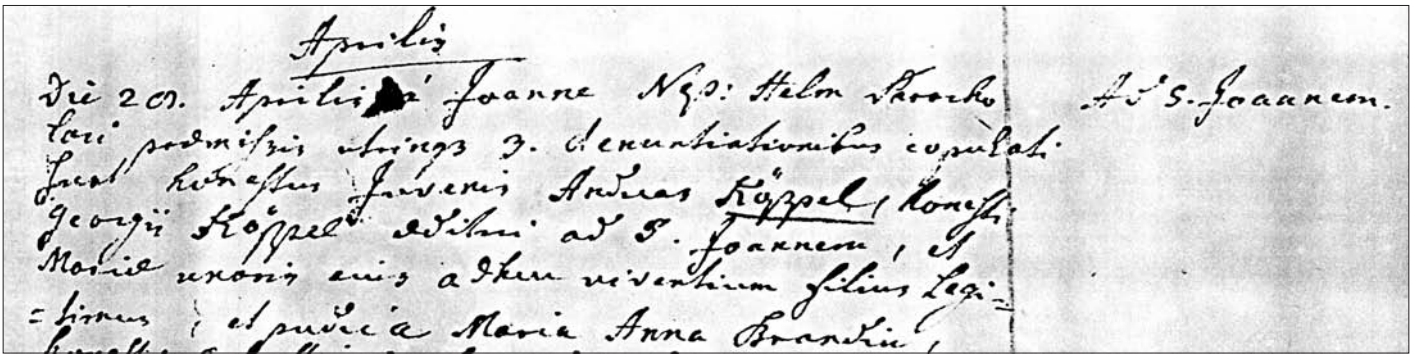 Aprilis
Die 20. Aprilis à Joanne Nep: Helm Parocho Ad S. Joannem.
loci praemissis utrinq3 3. denuntiationibus copulati
sunt honestus Juvenis Andreas Köppel, honesti
Georgii Köppel aditui ad S. Joannem, et
Mariae uxoris eius adhuc viventium filius Legi=
=timus, et pudica Maria Anna Brandin,